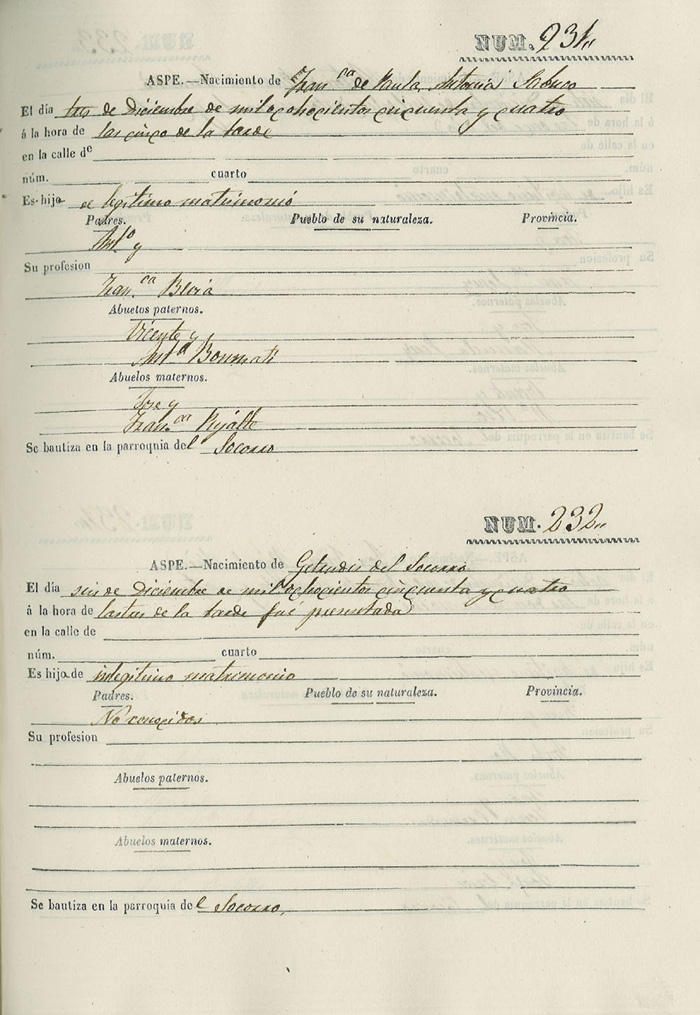 NUM. 231,,
ASPE.—Nacimiento de Fran.ca de Paula Antonia
El día tres de Diciembre de mil ochocientos cincuenta y cuatro
á la hora de las cinco de la tarde
en la calle de
núm. cuarto
Es hija de legitimo matrimonio
Padres. Pueblo de su naturaleza. Provincia.
Ant.o y
Su profesion
Fran.ca
Abuelos paternos.
Vicente y
Ant.a Bonmati
Abuelos maternos.
Jose y
Fran.ca
Se bautiza en la parroquia del Socorro
NUM. 232,,
ASPE.—Nacimiento de Getrudis del Socorro
El día seis de Diciembre de mil ochocientos cincuenta y cuatro
á la hora de las tres de la tarde fué presentada
en la calle de
núm. cuarto
Es hija de indegitimo matrimonio
Padres. Pueblo de su naturaleza. Provincia.
No conocidos
Su profesion
Abuelos paternos.
Abuelos maternos.
Se bautiza en la parroquia del Socorro,